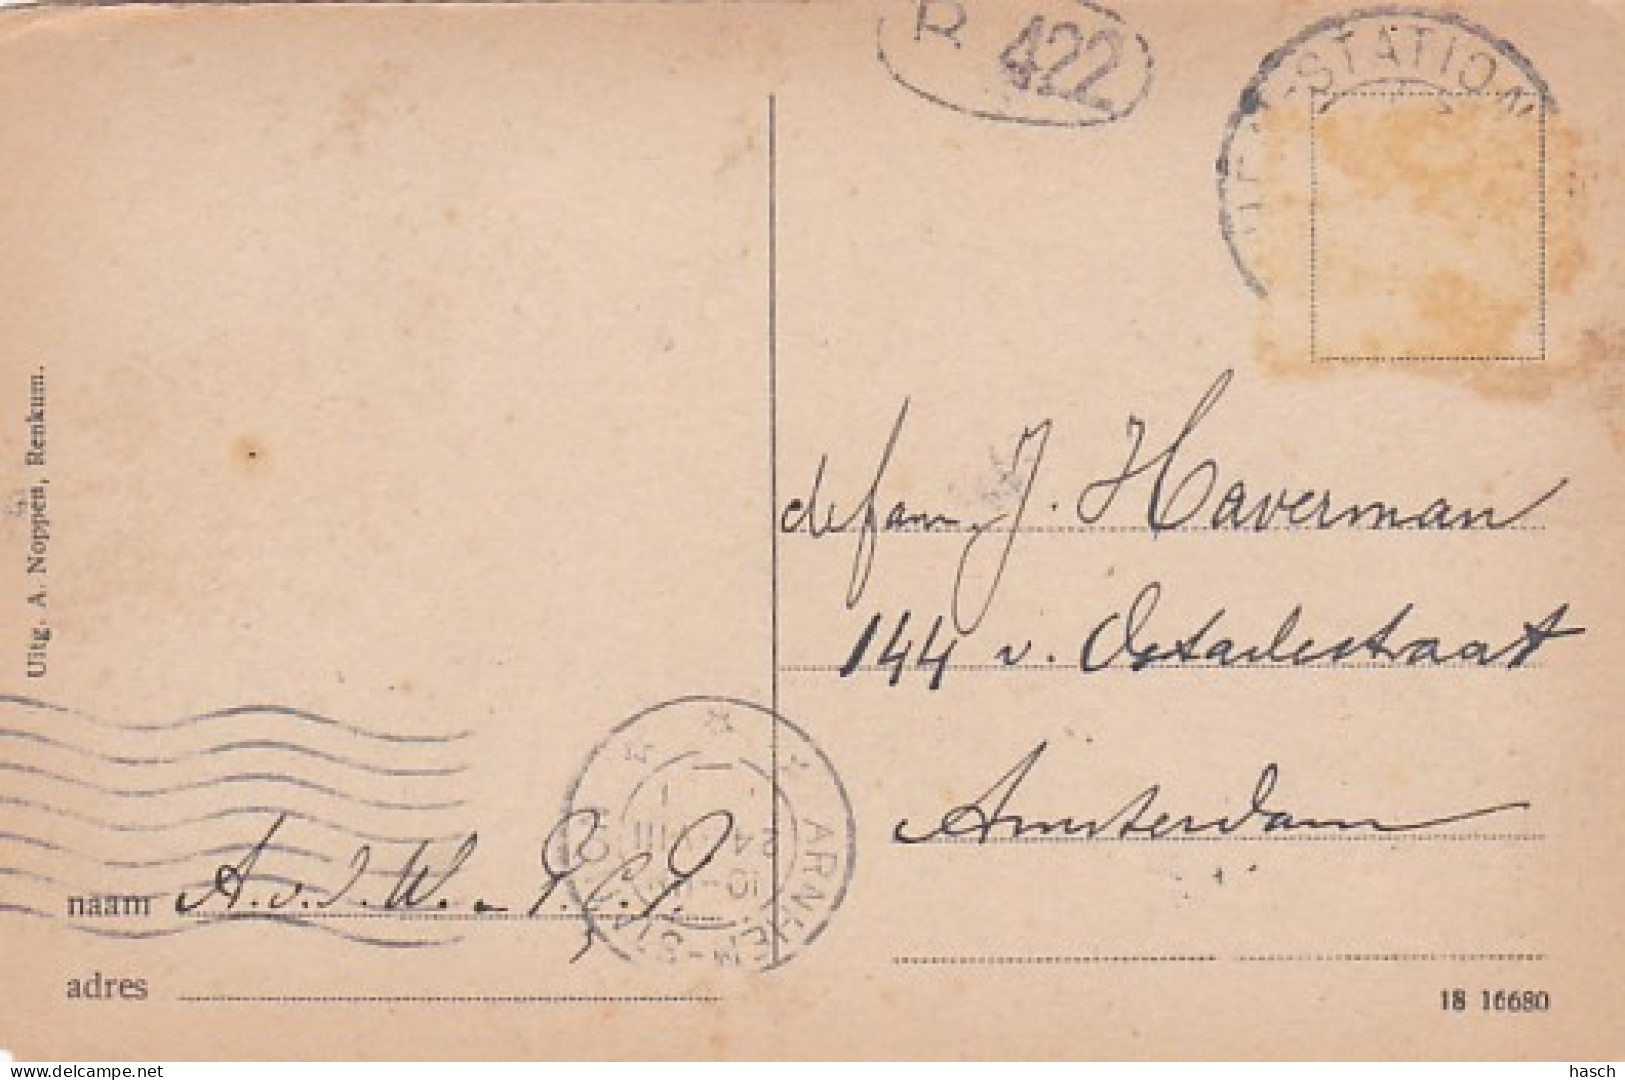 R. 422
-STATION
Uitg. A. Noppen, Renkum.
de fam. J. Haverman
144 v. Ostadestraat
Amsterdam
ARNHEM-STATION
naam A. v. d. W.
adres
18 16680
© delcampe.net
hasch